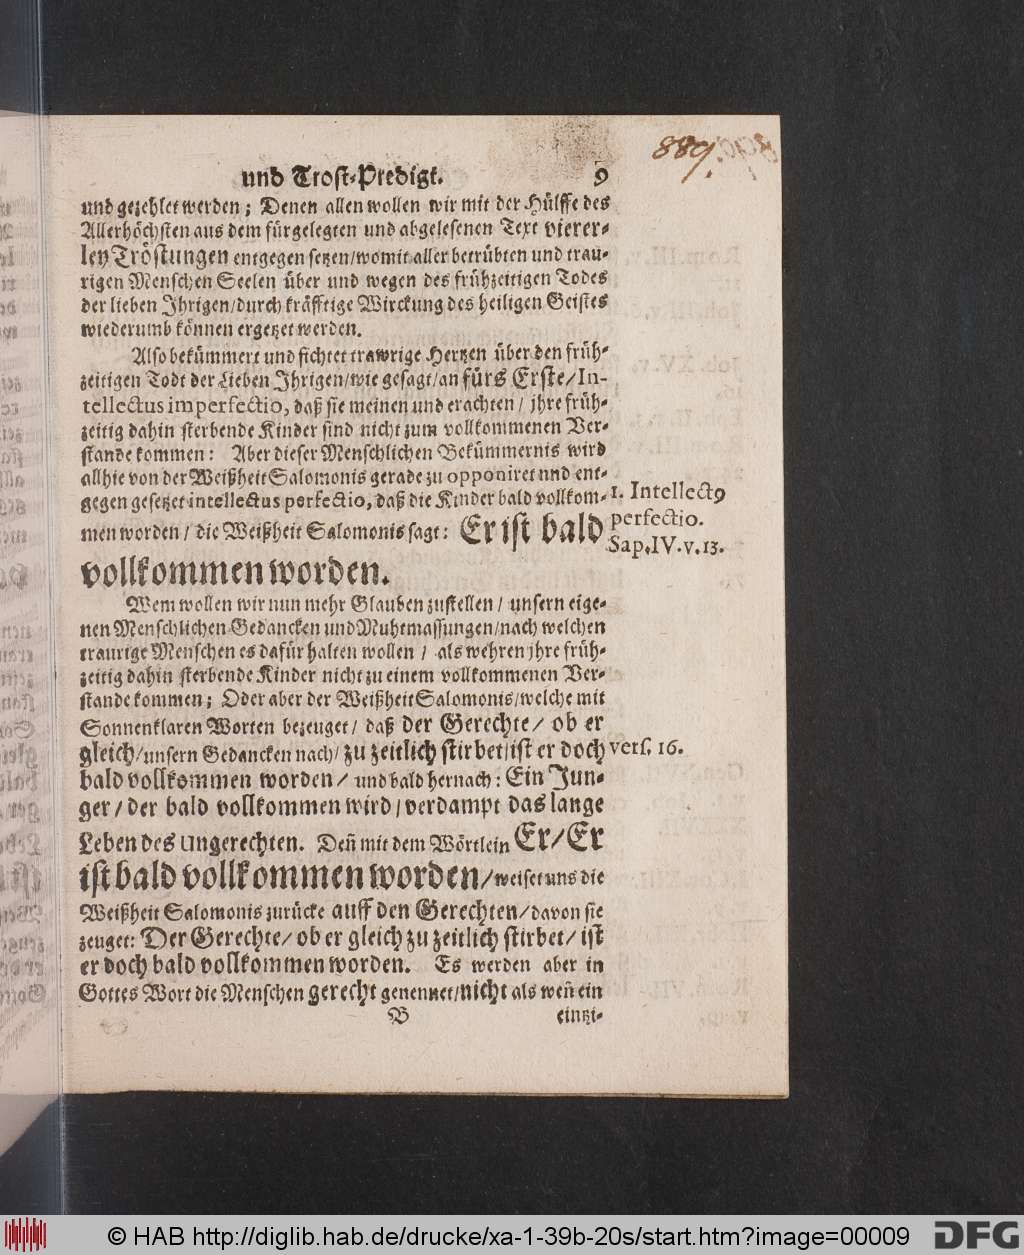 889.
und Trost-Predigt. 9
und gezehlet werden; Denen allen wollen wir mit der Hülffe des
Allerhöchsten aus dem fürgelegten und abgelesenen Text vierer-
ley Tröstungen entgegen setzen/womit aller betrübten und trau-
rigen Menschen Seelen über und wegen des frühzeitigen Todes
der lieben Jhrigen/durch kräfftige Wirckung des heiligen Geistes
wiederumb können ergetzet werden.
Also bekümmert und fichtet trawrige Hertzen über den früh-
zeitigen Todt der Lieben Jhrigen/wie gesagt/an fürs Erste/In-
tellectus imperfectio, daß sie meinen und erachten/ jhre früh-
zeitig dahin sterbende Kinder sind nicht zum vollkommenen Ver-
stande kommen: Aber dieser Menschlichen Bekümmernis wird
allhie von der Weißheit Salomonis gerade zu opponiret und ent-
gegen gesetzet intellectus perfectio, daß die Kinder bald vollkom-
men worden/ die Weißheit Salomonis sagt: Er ist bald
vollkommen worden.
1. Intellect9
perfectio.
Sap.IV.v.13.
Wem wollen wir nun mehr Glauben zustellen/ unsern eige-
nen Menschlichen Gedancken und Muhtmassungen/nach welchen
traurige Menschen es dafür halten wollen/ als wehren jhre früh-
zeitig dahin sterbende Kinder nicht zu einem vollkommenen Ver-
stande kommen; Oder aber der Weißheit Salomonis/welche mit
Sonnenklaren Worten bezeuget/ daß der Gerechte/ ob er
gleich/unsern Gedancken nach/ zu zeitlich stirbet/ist er doch
vers. 16.
bald vollkommen worden/ und bald hernach: Ein Jun-
ger/der bald vollkommen wird/verdampt das lange
Leben des Ungerechten. Deñ mit dem Wörtlein Er/Er
ist bald vollkommen worden/weiset uns die
Weißheit Salomonis zurücke auff den Gerechten/davon sie
zeuget: Der Gerechte/ ob er gleich zu zeitlich stirbet/ ist
er doch bald vollkommen worden. Es werden aber in
Gottes Wort die Menschen gerecht genennet/nicht als weñ ein
B eintzi-
© HAB http://diglib.hab.de/drucke/xa-1-39b-20s/start.htm?image=00009
DFG